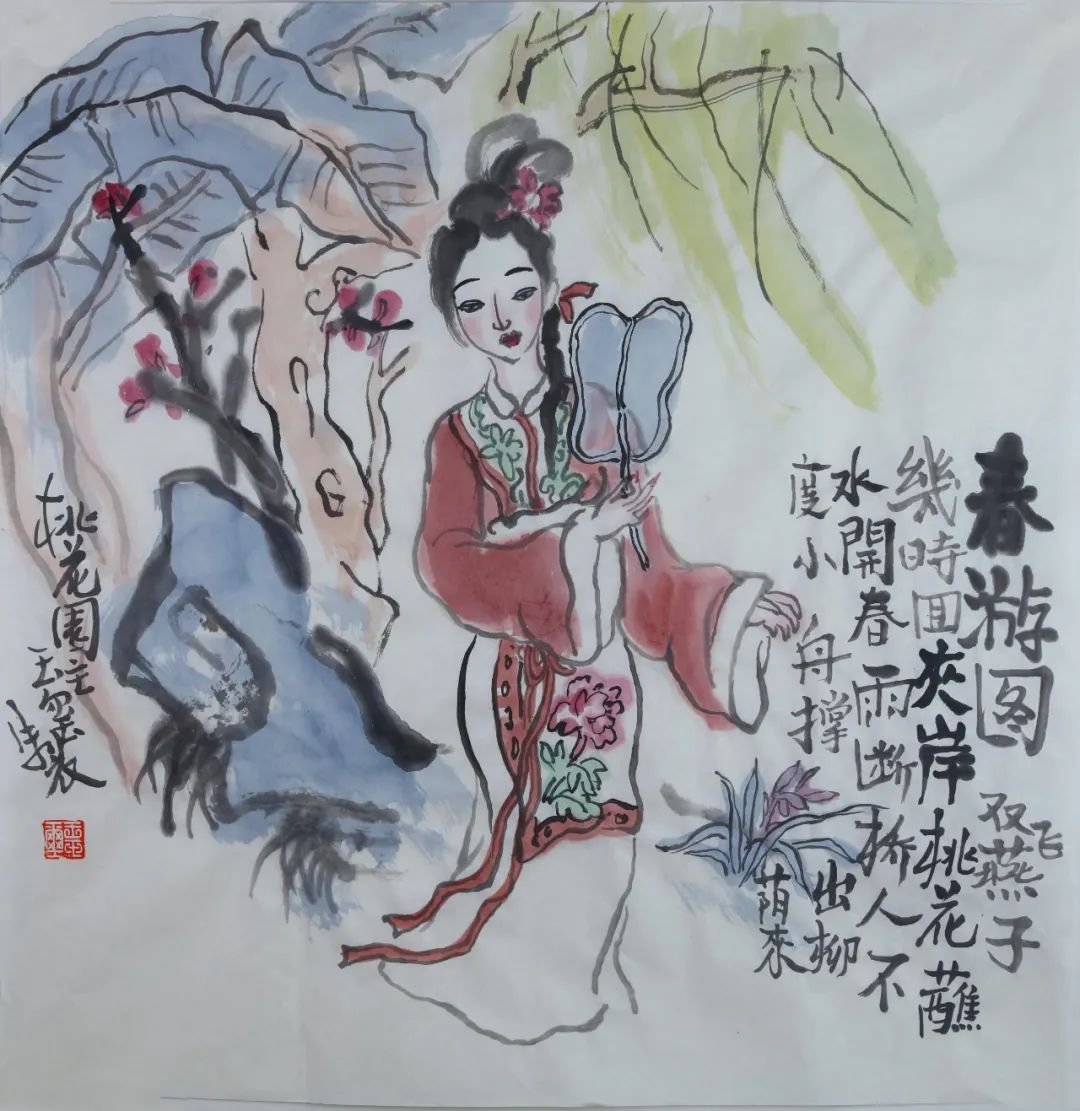 春游图 双飞燕子
幾時回夹岸桃花蘸
水開春雨断桥人不
度小舟撑出柳
荫來
桃花園主